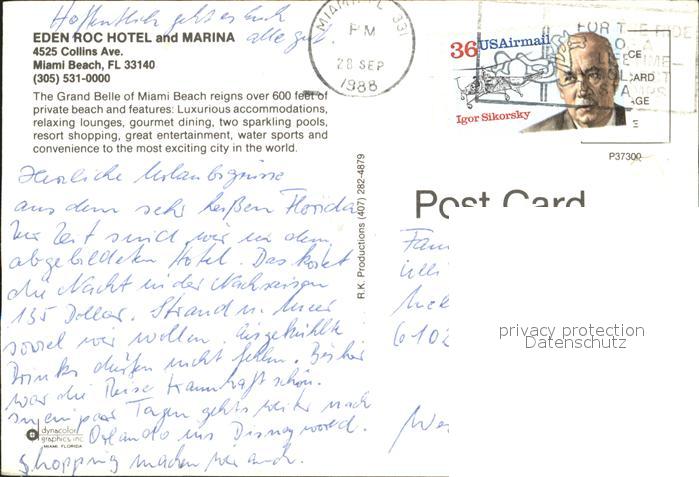 Hoffentlich geht es Euch
alle gut.
EDEN ROC HOTEL and MARINA
4525 Collins Ave.
Miami Beach, FL 33140
(305) 531-0000
The Grand Belle of Miami Beach reigns over 600 feet of
private beach and features: Luxurious accommodations,
relaxing lounges, gourmet dining, two sparkling pools,
resort shopping, great entertainment, water sports and
convenience to the most exciting city in the world.
MIAMI, FL 331
PM
28 SEP
1988
36 USAirmail
Igor Sikorsky
FOR THE
P37300
Post Card
Herzliche Urlaubsgrüsse
aus dem sehr heißen Florida
Zur Zeit sind wir in dem
abgebildeten Hotel. Das kostet
die Nacht in der Nachsaison
135 Dollar. Strand u. Meer
soviel wir wollen. Ausgekühlte
Drinks dürfen nicht fehlen. Bisher
war die Reise traumhaft schön.
In ein paar Tagen gehts weiter nach
Orlando ins Disney world.
Shopping machen wir auch.
R.K. Productions (407) 282-4879
dynacolor
graphics, inc.
MIAMI, FLORIDA
Fam
6102
privacy protection
Datenschutz